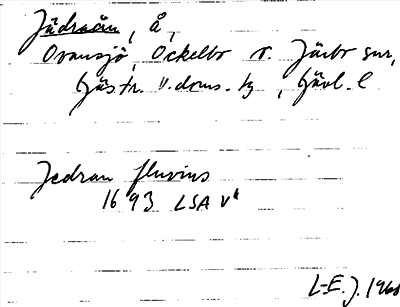 Jädraån, å,
Ovansjö, Ockelbo o. Järbo snr,
Gästr. v. doms. tg, Gävl. l
Jedran fluvius
1693 LSA V
L-E. J. 1960